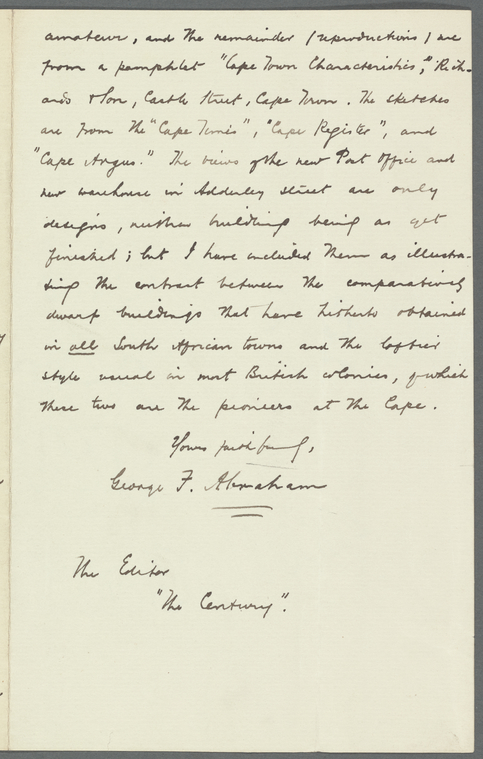 amateur, and the remainder (reproductions) are
from a pamphlet "Cape Town Characteristics," Rich-
ards & Son, Castle Street, Cape Town. The sketches
are from the "Cape Times", "Cape Register", and
"Cape Argus." The views of the new Post Office and
new warehouse in Adderley Street are only
designs, neither building being as yet
finished; but I have included them as illustra-
ting the contrast between the comparatively
dwarf buildings that have hitherto obtained
in all South African towns and the loftier
style usual in most British colonies, of which
these two are the pioneers at the Cape.
Yours faithfully,
George F. Abraham
The Editor
"The Century".